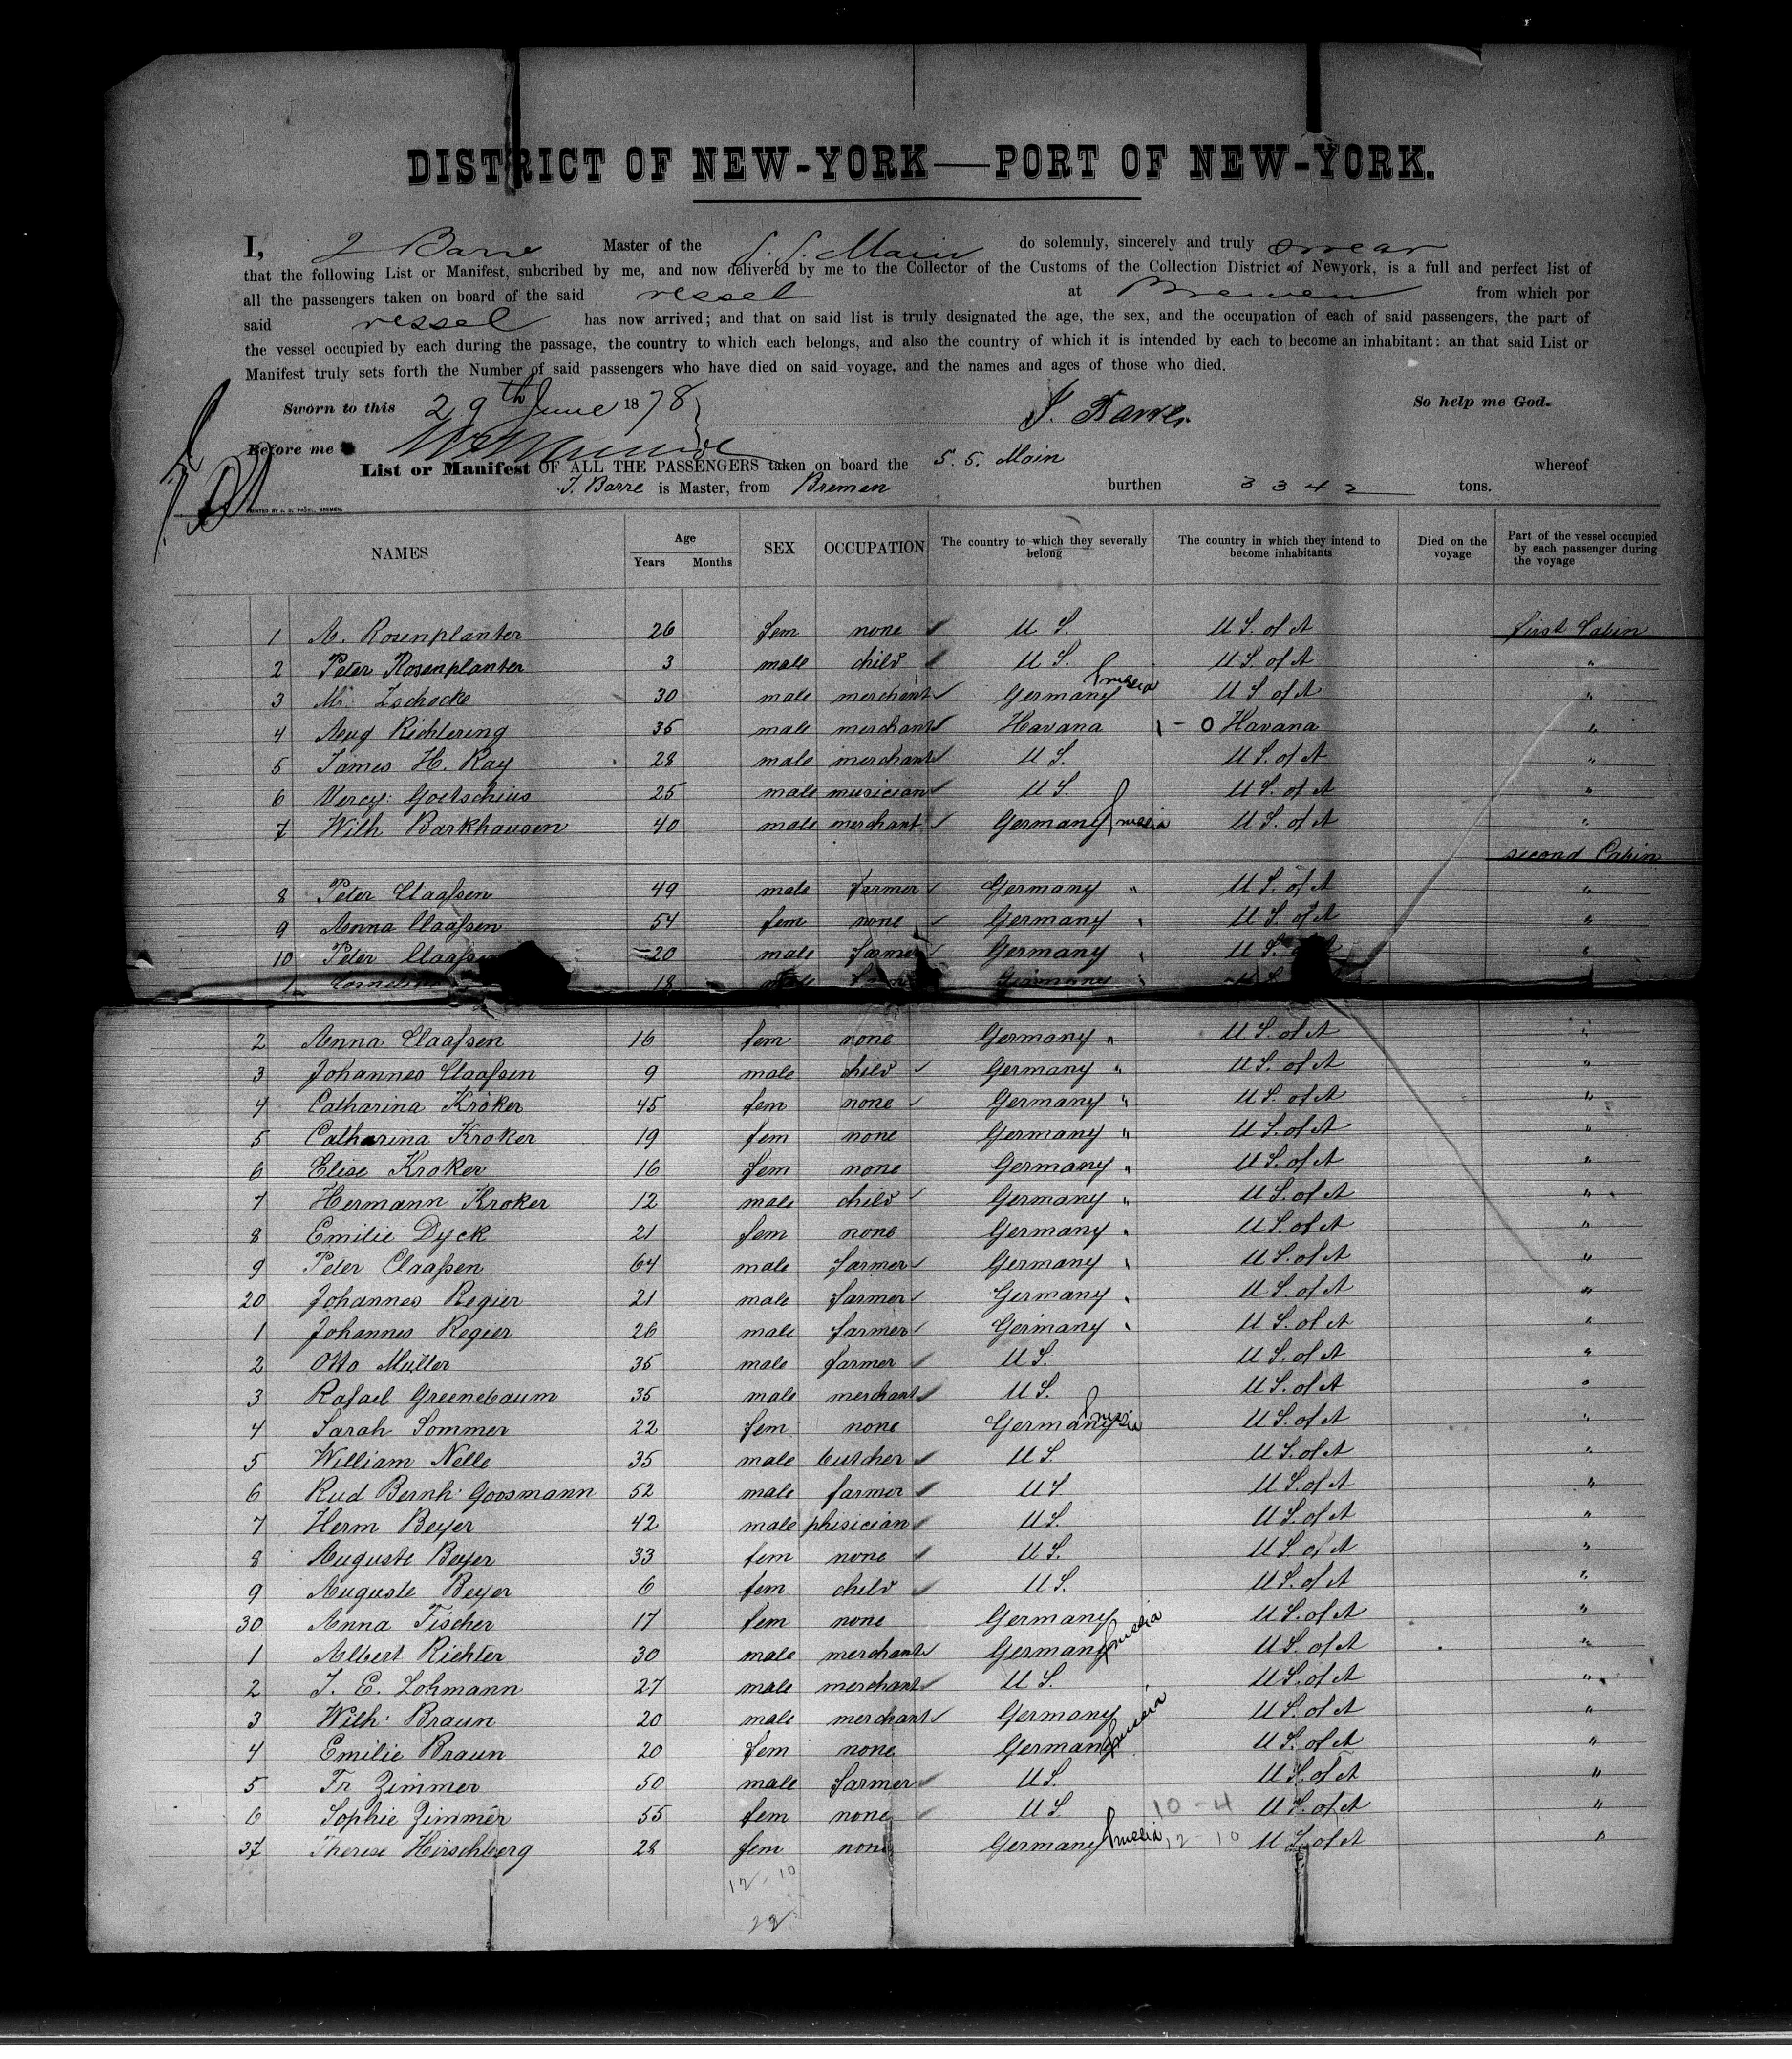 DISTRICT OF NEW-YORK—PORT OF NEW-YORK.
I, J Barre Master of the S. S. Main do solemuly, sincerely and truly swear
that the following List or Manifest, subcribed by me, and now delivered by me to the Collector of the Customs of the Collection District of Newyork, is a full and perfect list of
all the passengers taken on board of the said vessel at Bremen from which por
said vessel has now arrived; and that on said list is truly designated the age, the sex, and the occupation of each of said passengers, the part of
the vessel occupied by each during the passage, the country to which each belongs, and also the country of which it is intended by each to become an inhabitant: an that said List or
Manifest truly sets forth the Number of said passengers who have died on said voyage, and the names and ages of those who died.
Sworn to this 29th June 1878 J. Barre. So help me God.
Before me
List or Manifest OF ALL THE PASSENGERS taken on board the S. S. Main whereof
J. Barre is Master, from Bremen burthen 3342 tons.
NAMES Age Years Months SEX OCCUPATION The country to which they severally belong The country in which they intend to become inhabitants Died on the voyage Part of the vessel occupied by each passenger during the voyage
1 A. Rosenplanter 26 fem none U S. U S. of A first Cabin
2 Peter Rosenplanter 3 male child U S. U S. of A "
3 M. Zschocke 30 male merchant Germany Prussia U S of A "
4 Aug Richtering 35 male merchant Havana 1 - 0 Havana "
5 James H. Ray 28 male merchant U S. U S. of A "
6 Goetschius 25 male musician U S. U S. of A "
7 Wilh Barkhausen 40 male merchant Germany Prussia U S. of A "
second Cabin
8 Peter Claaſsen 49 male farmer Germany " U S. of A "
9 Anna Claaſsen 54 fem none Germany " U S. of A "
10 Peter Claaſsen 20 male farmer Germany " U S. of A "
18 male Germany "
2 Anna Claaſsen 16 fem none Germany " U S. of A "
3 Johannes Claaſsen 9 male child Germany " U S. of A "
4 Catharina Kröker 45 fem none Germany " U S. of A "
5 Catharina Kroker 19 fem none Germany " U S. of A "
6 Elise Kroker 16 fem none Germany " U S. of A "
7 Hermann Kroker 12 male child Germany " U S. of A "
8 Emilie Dyck 21 fem none Germany " U S. of A "
9 Peter Claaſsen 64 male farmer Germany " U S. of A "
20 Johannes Regier 21 male farmer Germany " U S. of A "
1 Johannes Regier 26 male farmer Germany " U S. of A "
2 Otto Müller 35 male farmer U S. U S. of A "
3 Rafael Greenebaum 35 male merchant U S. U S. of A "
4 Sarah Sommer 22 fem none Germany Prussia U S. of A "
5 William Nelle 35 male butcher U S. U S. of A "
6 Rud Bernh. Goosmann 52 male farmer U S U S. of A "
7 Herm Beyer 42 male phisician U S. U S. of A "
8 Auguste Beyer 33 fem none U S. U S. of A "
9 Auguste Beyer 6 fem child U S. U S. of A "
30 Anna Fischer 17 fem none Germany U S. of A "
1 Albert Richter 30 male merchant Germany Prussia U S. of A "
2 J. E. Lohmann 27 male merchant U S. U S. of A "
3 Wilh. Braun 20 male merchant Germany U S. of A "
4 Emilie Braun 20 fem none Germany Prussia U S. of A "
5 Fr Zimmer 50 male farmer U S. U S. of A "
6 Sophie Zimmer 55 fem none U S. 10 - 4 U S. of A "
37 Therese Hirschberg 28 fem none Germany Prussia 12 - 10 U S. of A "
12 - 10
22